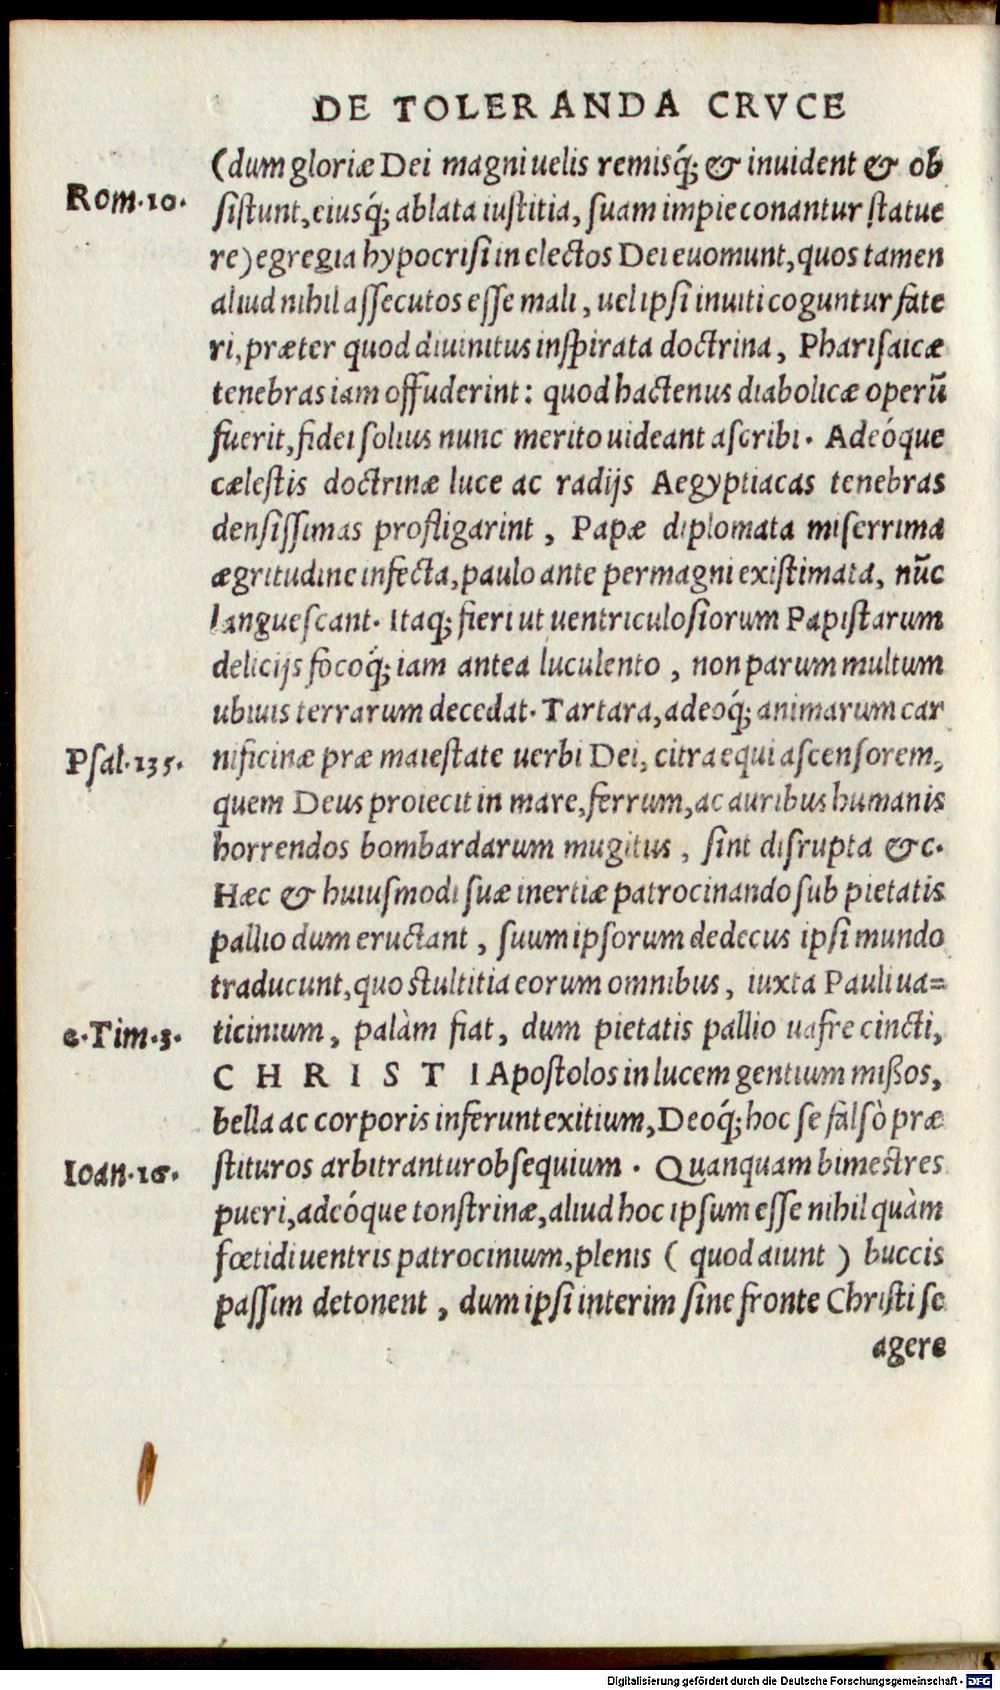 DE TOLERANDA CRVCE
(dum gloriæ Dei magni uelis remisq́; & inuident & ob
Rom.10.
sistunt, eiusq́; ablata iustitia, suam impie conantur statue
re) egregia hypocrisi in electos Dei euomunt, quos tamen
aliud nihil assecutos esse mali, uel ipsi inuiti coguntur fate
ri, præter quod diuinitus inspirata doctrina, Pharisaicæ
tenebras iam offuderint: quod hactenus diabolicæ operū
fuerit, fidei solius nunc merito uideant ascribi. Adeóque
cælestis doctrinæ luce ac radijs Aegyptiacas tenebras
densissimas profligarint, Papæ diplomata miserrima
ægritudine infecta, paulo ante permagni existimata, nūc
languescant. Itaq; fieri ut uentriculosiorum Papistarum
delicijs focoq́; iam antea luculento, non parum multum
ubiuis terrarum decedat. Tartara, adeoq́; animarum car
Psal.135.
nificinæ præ maiestate uerbi Dei, citra equi ascensorem,
quem Deus proiecit in mare, ferrum, ac auribus humanis
horrendos bombardarum mugitus, sint disrupta &c.
Hæc & huiusmodi suæ inertiæ patrocinando sub pietatis
pallio dum eructant, suum ipsorum dedecus ipsi mundo
traducunt, quo stultitia eorum omnibus, iuxta Pauli ua=
2.Tim.3.
ticinium, palàm fiat, dum pietatis pallio uafre cincti,
CHRISTI Apostolos in lucem gentium mißos,
bella ac corporis inferunt exitium, Deoq́; hoc se falsò præ
Ioan.16.
stituros arbitrantur obsequium. Quanquam bimestres
pueri, adeóque tonstrinæ, aliud hoc ipsum esse nihil quàm
fœtidi uentris patrocinium, plenis ( quod aiunt ) buccis
passim detonent, dum ipsi interim sine fronte Christi se
agere
Digitalisierung gefördert durch die Deutsche Forschungsgemeinschaft - DFG